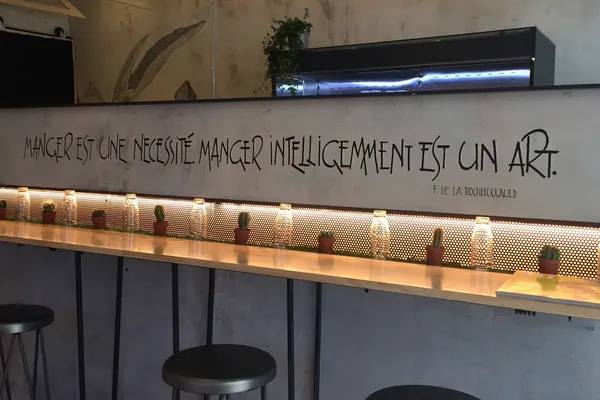 MANGER EST UNE NECESSITÉ. MANGER INTELLIGEMMENT EST UN ART.
F. DE LA ROCHEFOUCAULD